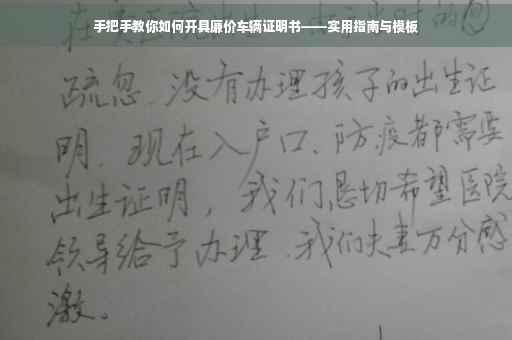 手把手教你如何开具廉价车辆证明书——实用指南与模板
疏忽、没有办理孩子的出生证
明、现在入户口、防疫都需要
出生证明，我们恳切希望医院
领导给予办理、我们夫妻万分感
激。